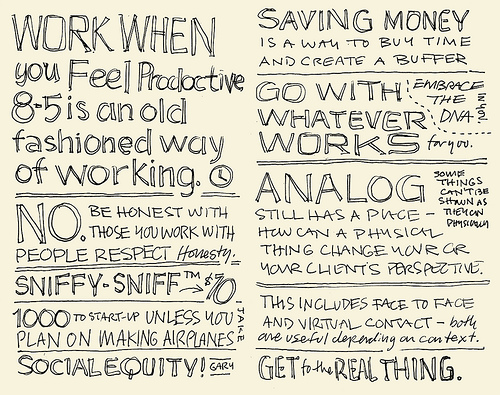 WORK WHEN
you Feel Productive
8-5 is an old
fashioned way
of working.
NO. BE HONEST WITH
THOSE YOU WORK WITH
PEOPLE RESPECT Honesty.
SNIFFY-SNIFF™ → $70
1000 TO START-UP UNLESS YOU
PLAN ON MAKING AIRPLANES
SOCIAL EQUITY! GARY
SAVING MONEY
IS A WAY TO BUY TIME
AND CREATE A BUFFER
GO WITH
WHATEVER
WORKS for you.
EMBRACE
THE
DNA
ANALOG
SOME
THINGS
CAN'T BE
SHOWN AS
THEY CAN
PHYSICALLY
STILL HAS A PLACE –
HOW CAN A PHYSICAL
THING CHANGE YOUR OR
YOUR CLIENT'S PERSPECTIVE.
THIS INCLUDES FACE TO FACE
AND VIRTUAL CONTACT – both
are useful depending on context.
GET to the REAL THING.